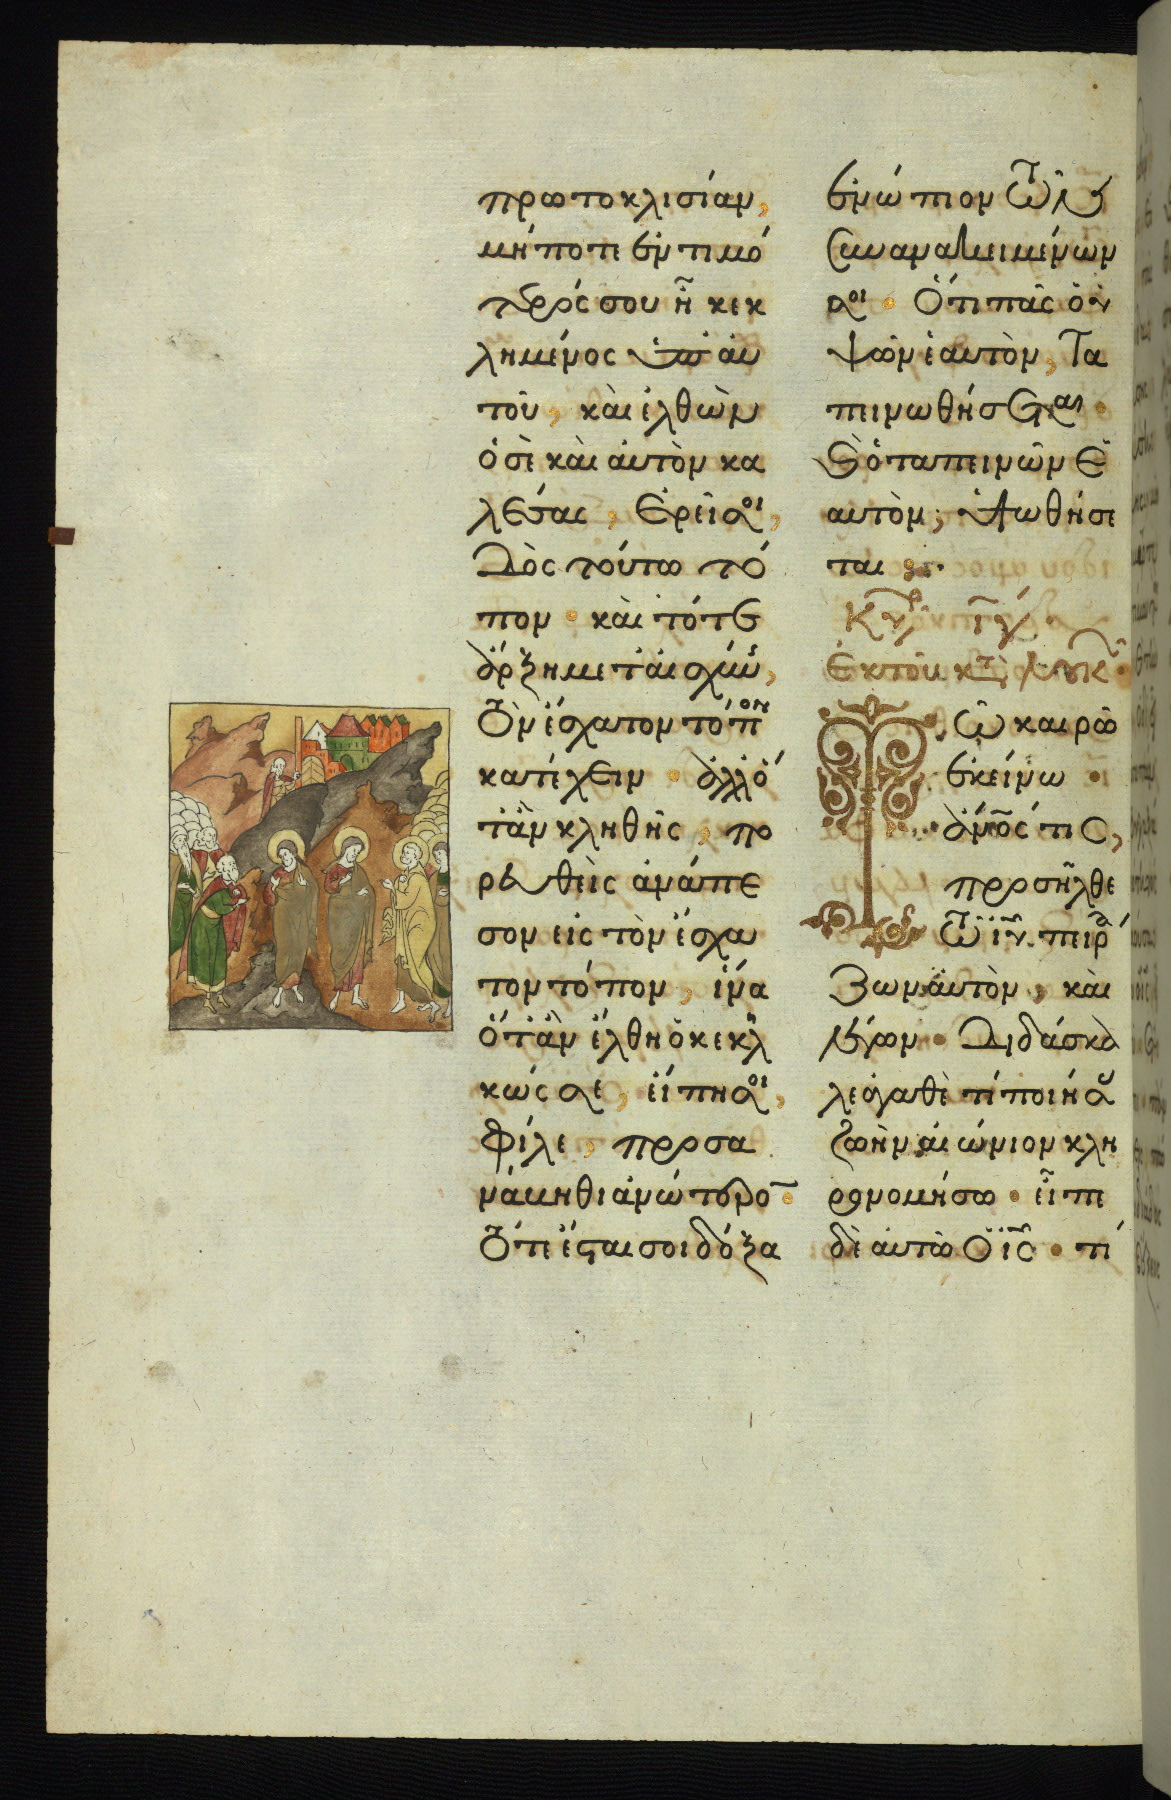 πρωτοκλισίαν,
μήποτε ἐντιμό
τερός σου ἦ κεκ
λημένος ὑπ αυ
τοῦ, καὶ ἐλθὼν
ὁ σὲ καὶ αὐτὸν κα
λέσας, ἐρεῖ σοι,
Δὸς τούτω τό
πον · καὶ τότε
ἄρξη μετ αἰσχύν,
τὸν ἔσχατον τόπον
κατέχειν · ἀλλ ὅ
τ ἂν κληθῆς, πο
ρευθεὶς ἀνάπε
σον εἰς τὸν ἔσχα
τον τόπον, ἵνα
ὅτ ἂν ἔλθη ὁ κεκλ
κώς σε, εἴπη σοι,
Φίλε, προσα
νάβηθι ἀνώτερο
τότε ἔσται σοι δόξα
ἐνώπιον τῶν
συνανακειμένων
σοι · Ὅτι πᾶς ὁ ὑ
ψῶν ἑαυτὸν, Τα
πεινωθήσεται ·
καὶ ὁ ταπεινῶν ἑ
αυτὸν, ὑψωθήσε
ται
Κυρ ιγ
Ἐκ τοῦ κατ Λουκ
Τῶ καιρῶ
ἐκείνω ·
ἄνος τις,
προσῆλθε
τῶ ἰῦ, πειρά
ζων αὐτὸν, καὶ
λέγων · Διδάσκα
λε ἀγαθὲ τί ποιήσ
ζωὴν αἰώνιον κλη
ρονομήσω · εἶπε
δὲ αὐτῶ ὁ ἰς · τί